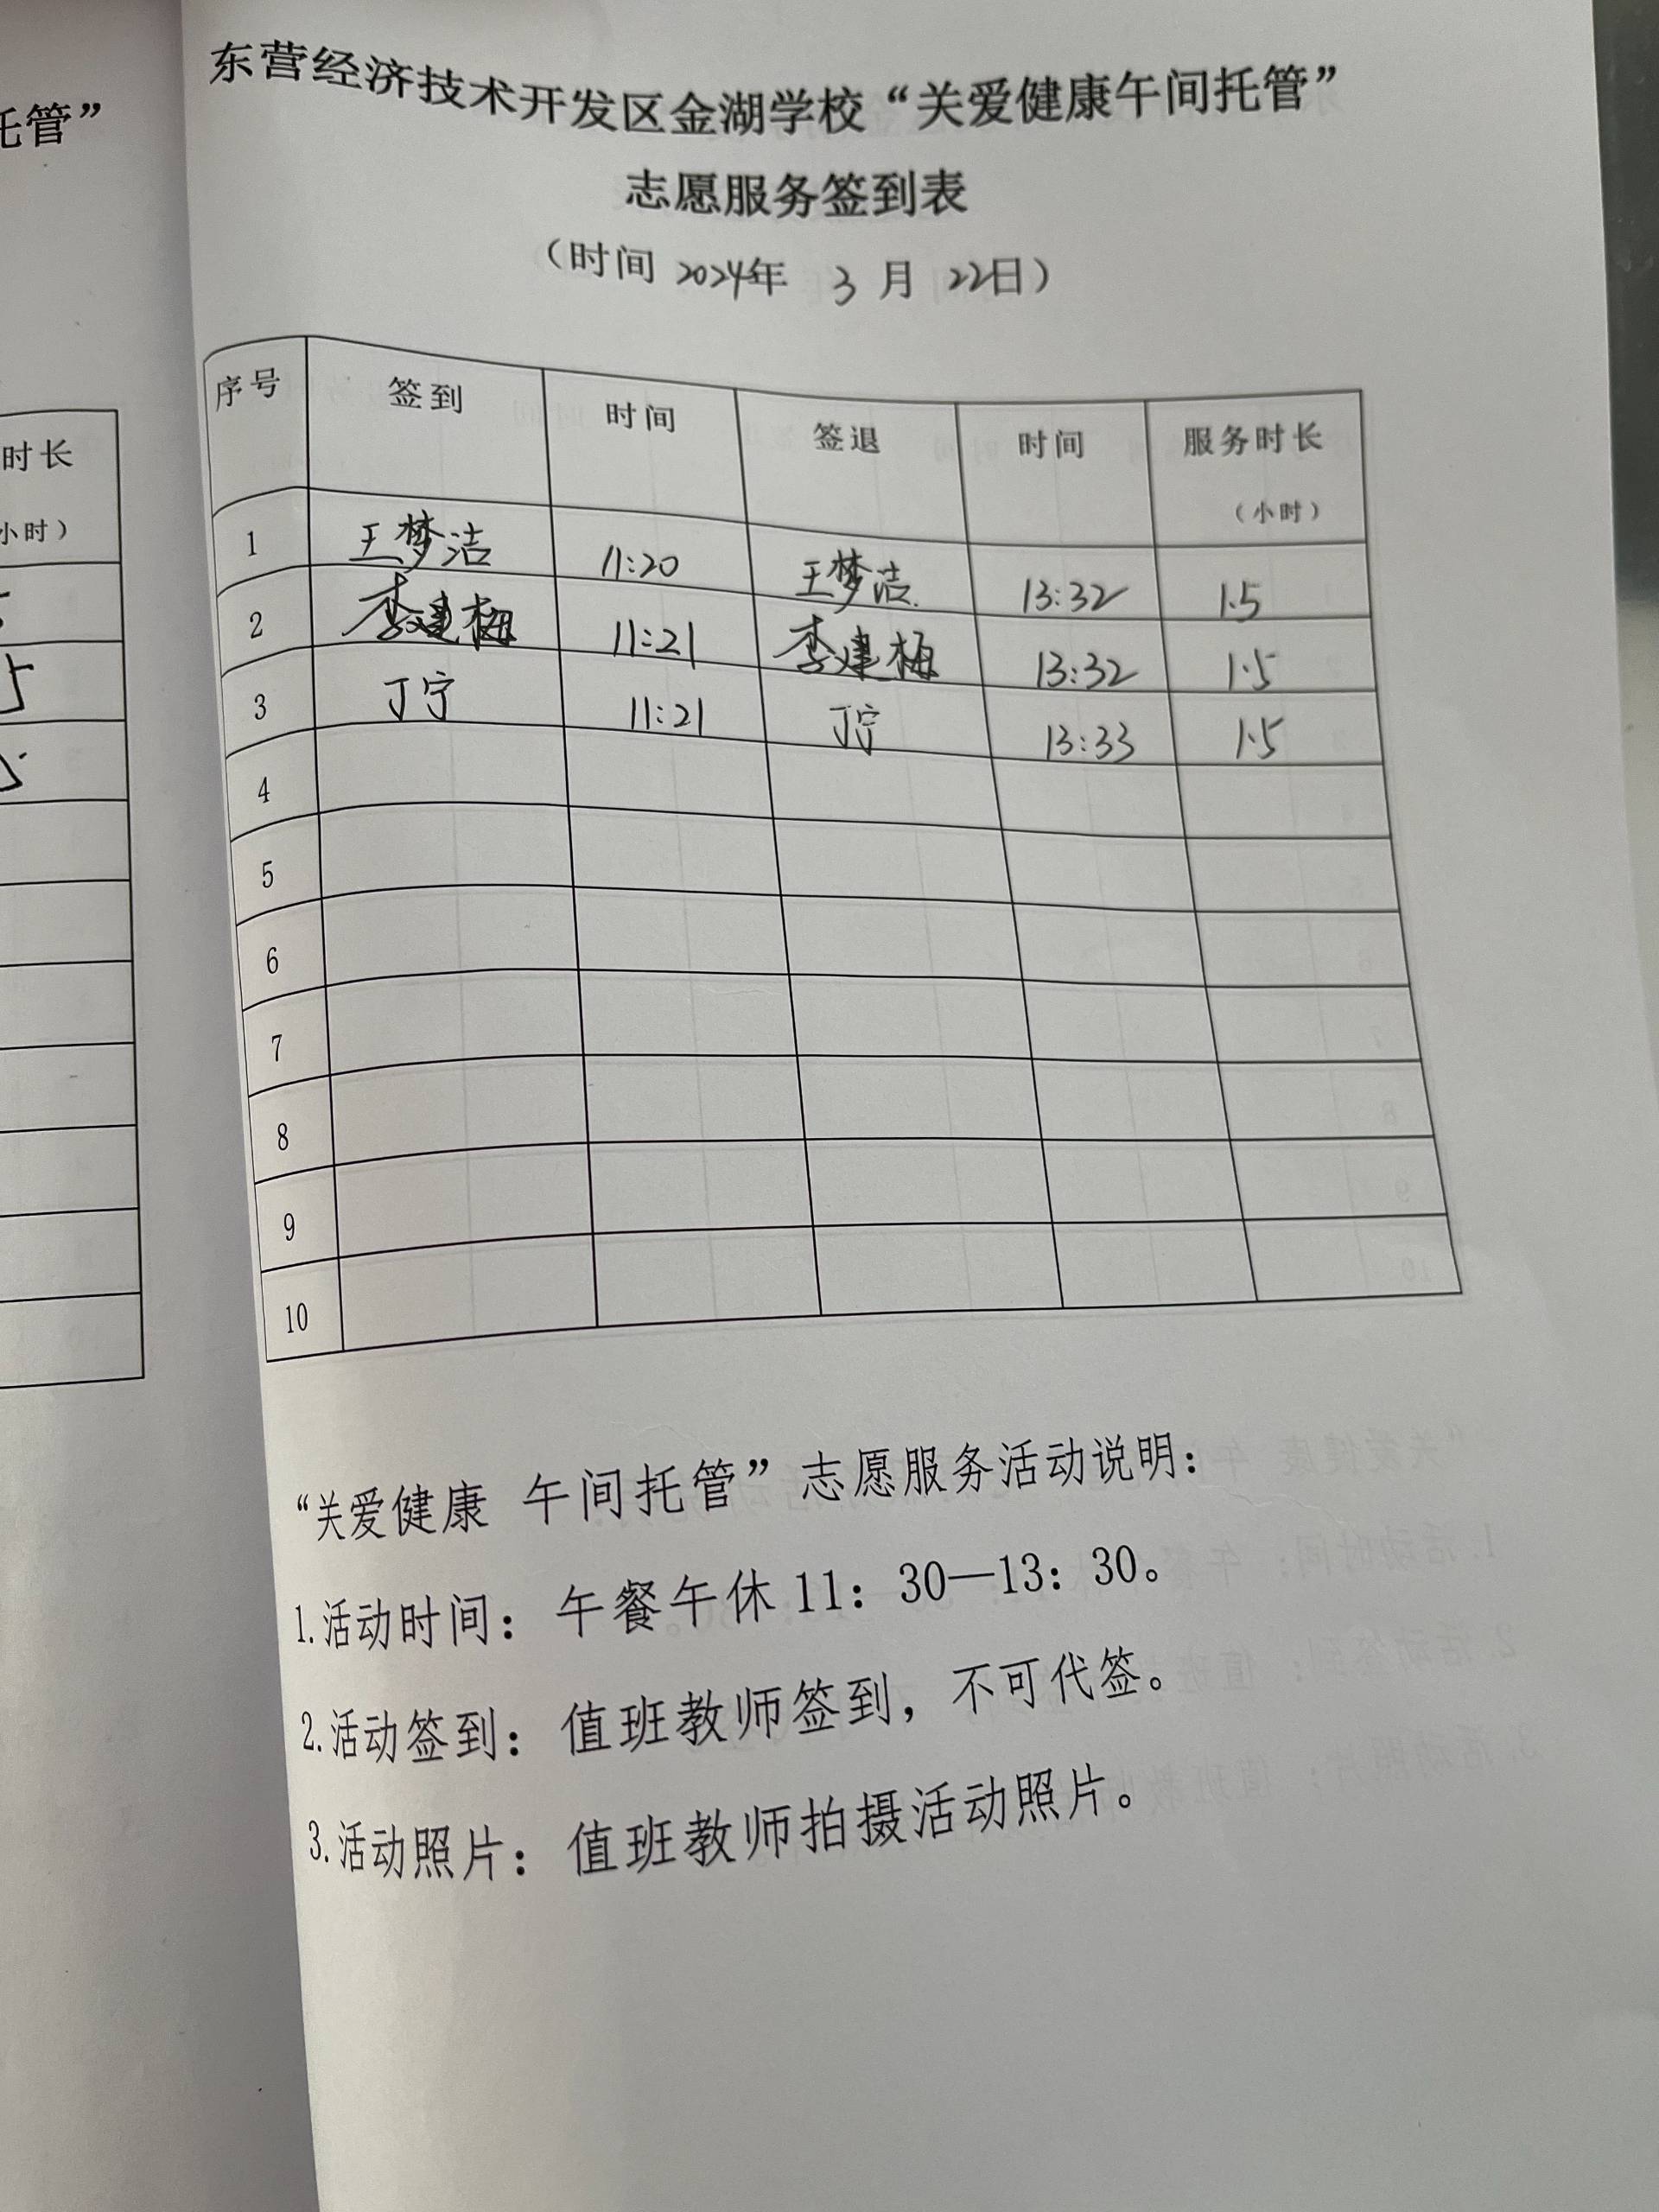 托管”
时长
小时）
5
5
东营经济技术开发区金湖学校“关爱健康午间托管”
志愿服务签到表
（时间 2024年 3 月 22日）
序号 签到 时间 签退 时间 服务时长（小时）
1 王梦洁 11:20 王梦洁 13:32 1.5
2 李建梅 11:21 李建梅 13:32 1.5
3 丁宁 11:21 丁宁 13:33 1.5
4
5
6
7
8
9
10
“关爱健康 午间托管”志愿服务活动说明：
1.活动时间：午餐午休 11：30—13：30。
2.活动签到：值班教师签到，不可代签。
3.活动照片：值班教师拍摄活动照片。